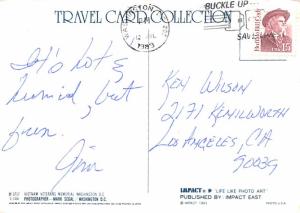 TRAVEL CARD COLLECTION
WASHINGTON, DC
BUCKLE UP
Buffalo Bill Cody
USA 15
It's hot &
humid, but
fun.
Jim
Ken Wilson
2171 Kenilworth
Los Angeles, CA
90039
VIETNAM VETERANS MEMORIAL WASHINGTON D.C.
PHOTOGRAPHER - MARK SEGAL, WASHINGTON D.C.
IMPACT "LIFE LIKE PHOTO ART"
PUBLISHED BY: IMPACT EAST